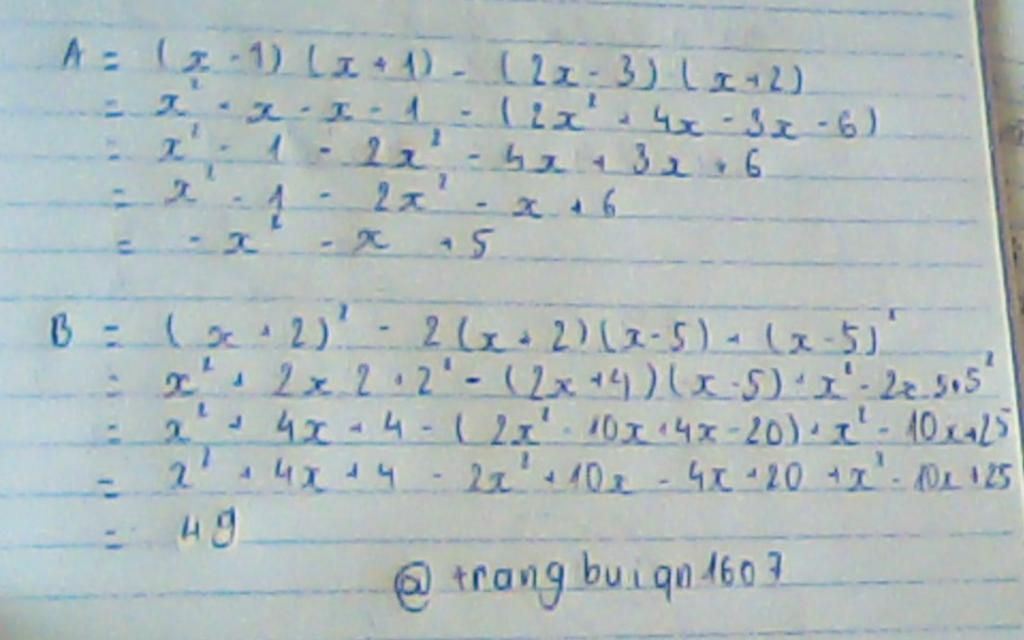 A = (x - 1) (x + 1) - (2x - 3) (x + 2)
= x² - x - x - 1 - (2x² + 4x - 3x - 6)
= x² - 1 - 2x² - 4x + 3x + 6
= x² - 1 - 2x² - x + 6
= - x² - x + 5
B = (x + 2)² - 2 (x + 2) (x - 5) + (x - 5)²
= x² + 2x 2 + 2² - (2x + 4) (x - 5) + x² - 2x 5 + 5²
= x² + 4x + 4 - (2x² - 10x + 4x - 20) + x² - 10x + 25
= x² + 4x + 4 - 2x² + 10x - 4x + 20 + x² - 10x + 25
= 49
@trangbuiqn1607